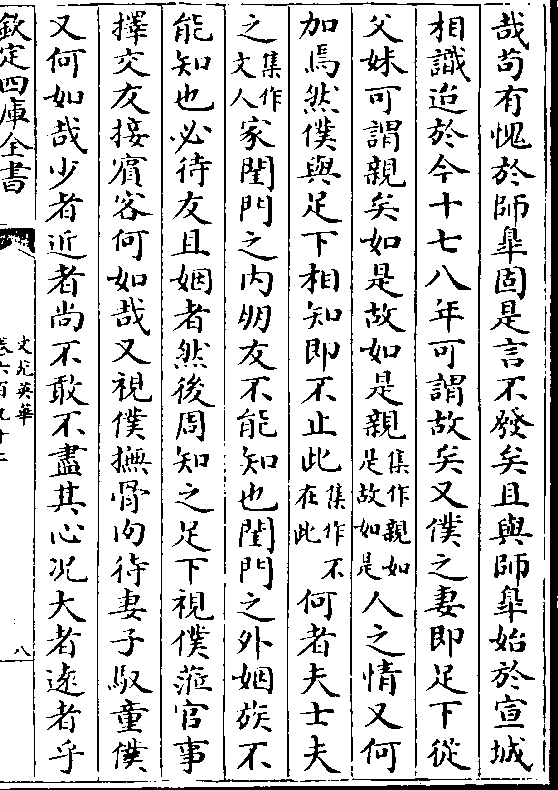 哉茍有愧於師臯固是言不發矣且與師臯始於宣城
相識迨於今十七八年可謂故矣又僕之妻即足下從
父妹可謂親矣如是故如是親集作親如是故如是人之情又何
加焉然僕與足下相知即不止此集作不在此何者夫士夫
之集作文人家閨門之内朋友不能知也閨門之外姻族不
能知也必待友且姻者然後周知之足下視僕蒞官事
擇交友接賔客何如哉又視僕撫骨肉待妻子馭童僕
又何如哉少者近者尚不敢不盡其心况大者逺者乎
欽定四庫全書
文苑英華
卷六百九十二
八